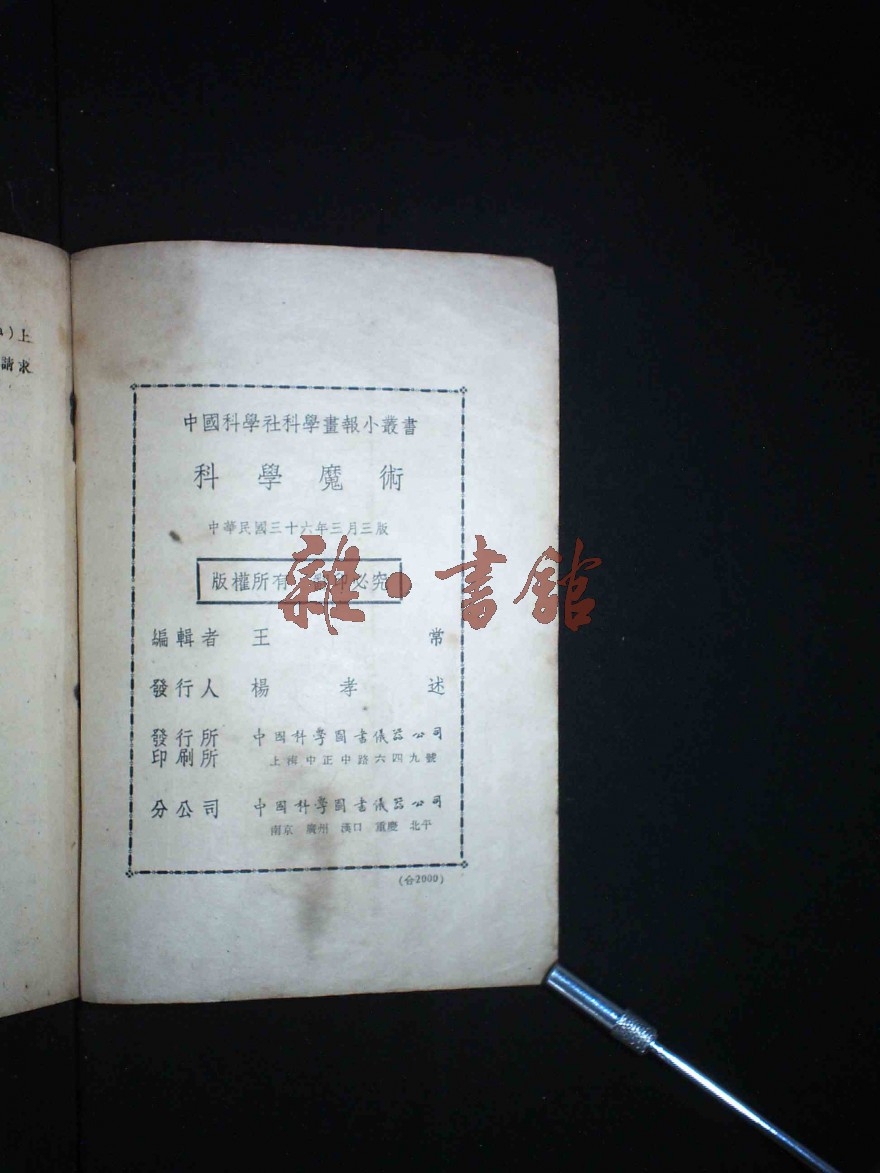 )上
請求
中國科學社科學畫報小叢書
科學魔術
中華民國三十六年三月三版
版權所有 印必究
雜·書館
編輯者 王常
發行人 楊孝述
發行所 中國科學圖書儀器公司
印刷所 上海中正中路六四九號
分公司 中國科學圖書儀器公司
南京 廣州 漢口 重慶 北平
(合2000)